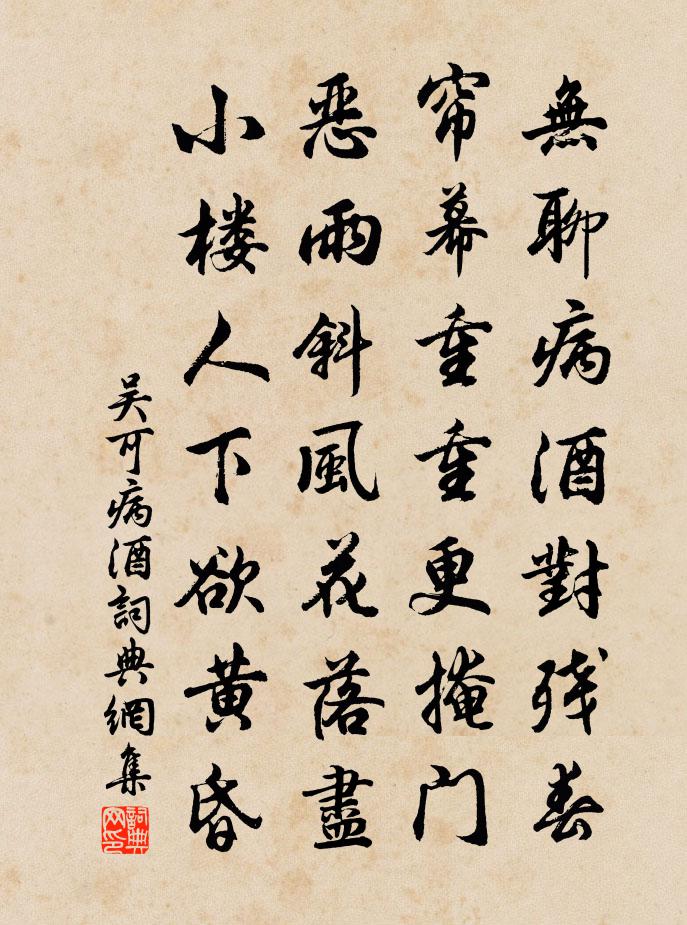 無聊病酒對残春
帘幕重重更掩门
恶雨斜風花落盡
小楼人下欲黄昏
吴可病酒詞典網集
詞典网印